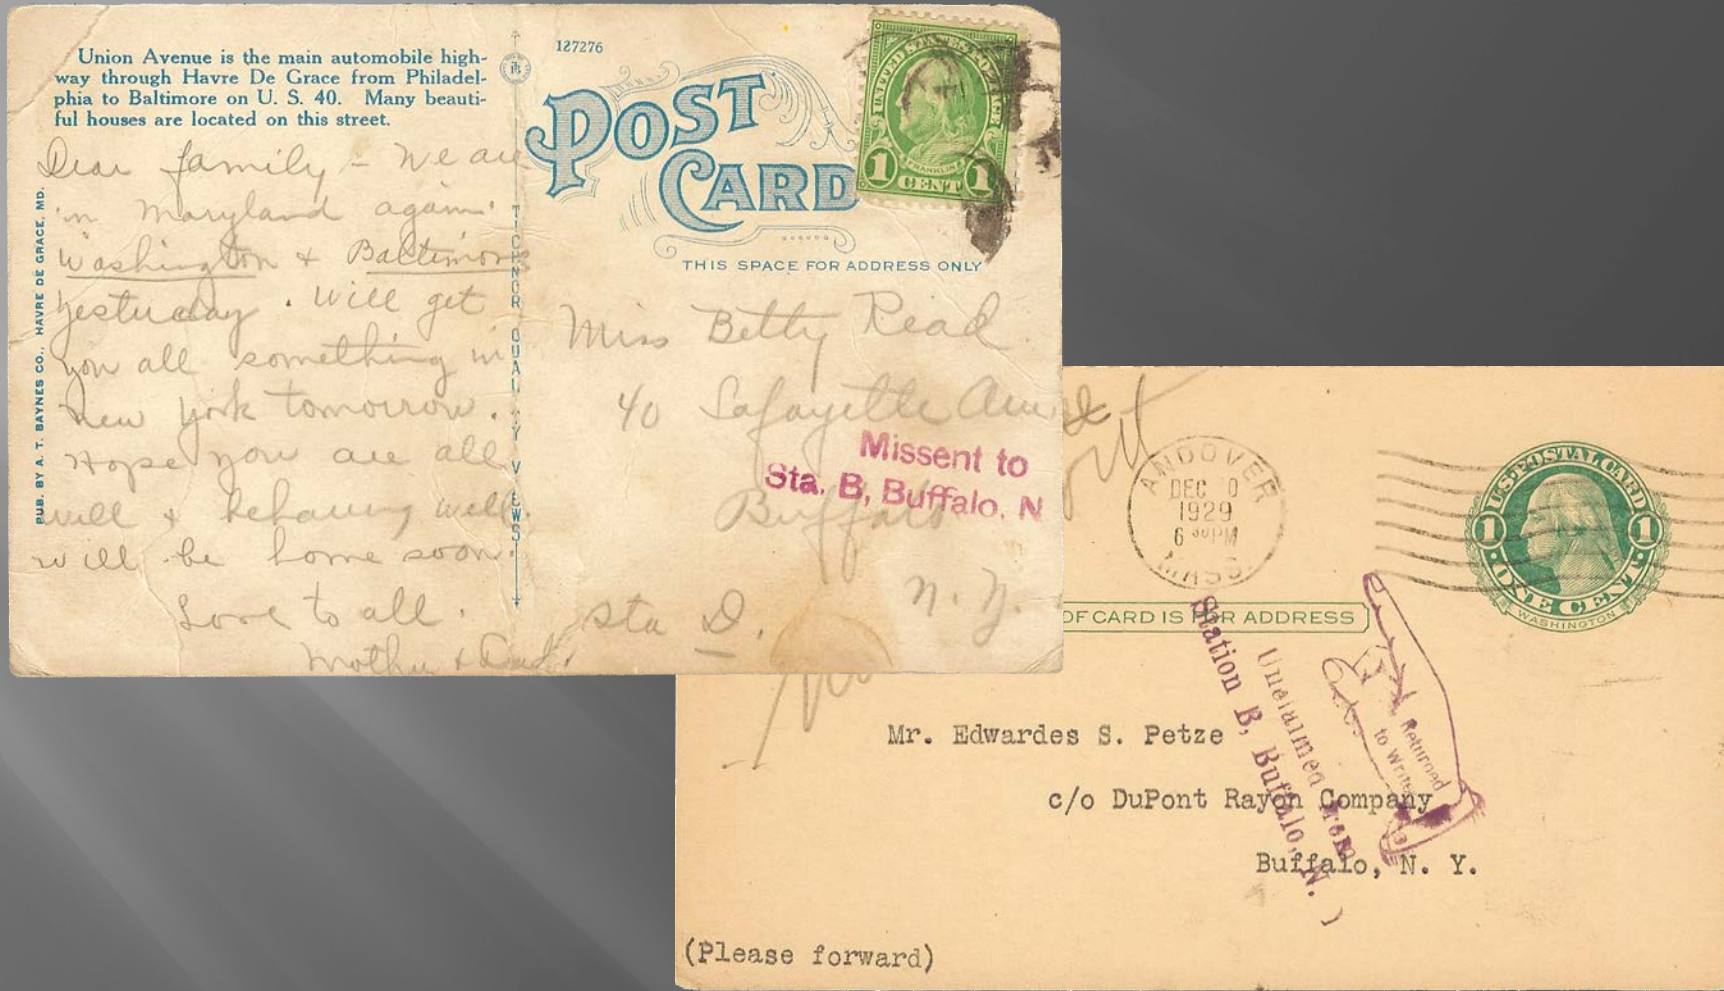 Union Avenue is the main automobile high-
way through Havre De Grace from Philadel-
phia to Baltimore on U. S. 40. Many beauti-
ful houses are located on this street.
Dear family - We are
in Maryland again.
Washington + Baltimore
yesturday. Will get
you all something in
New York tomorrow.
Hope you are all
well + behaving well
will be home soon.
Love to all.
Mother + Dad.
PUB. BY A. T. BAYNES CO., HAVRE DE GRACE, MD.
TICHNOR QUALITY VIEWS
127276
POST
CARD
UNITED STATES POSTAGE
FRANKLIN
1 CENT 1
THIS SPACE FOR ADDRESS ONLY
Miss Betty Read
40 Lafayette Ave
Missent to
Sta. B, Buffalo, N
Buffalo
N. Y.
Sta D.
ANDOVER
DEC 0
1929
6 30 PM
MASS.
U.S. POSTAL CARD
1 1
ONE CENT
WASHINGTON
OF CARD IS FOR ADDRESS
Unclaimed from
Station B, Buffalo, N.
Returned
to Writer
Mr. Edwardes S. Petze
c/o DuPont Rayon Company
Buffalo, N. Y.
(Please forward)